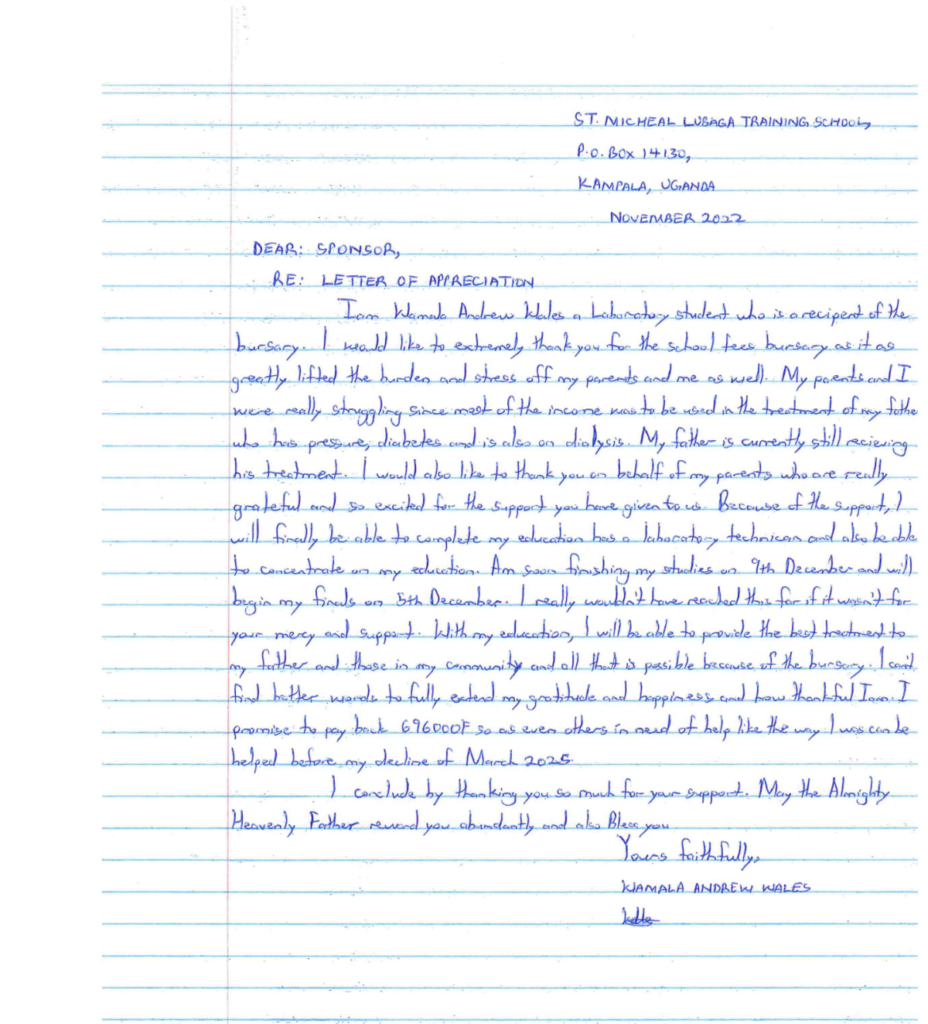 ST. MICHEAL LUBAGA TRAINING SCHOOL,
P.O. BOX 14130,
KAMPALA, UGANDA
NOVEMBER 2022
DEAR: SPONSOR,
RE: LETTER OF APPRECIATION
Iam Wamala Andrew Wales a Laboratory student who is a recipent of the
bursary. I would like to extremely thank you for the school fees bursary as it as
greatly lifted the burden and stress off my parents and me as well. My parents and I
were really struggling since most of the income was to be used in the treatment of my fathe
who has pressure, diabetes and is also on dialysis. My father is currently still recieving
his treatment. I would also like to thank you on behalf of my parents who are really
grateful and so excited for the support you have given to us. Because of the support, I
will finally be able to complete my education has a laboratory technican and also be able
to concentrate on my education. Am soon finishing my studies on 9th December and will
begin my finals on 5th December. I really wouldn't have reached this far if it wasn't for
your mercy and support. With my education, I will be able to provide the best treatment to
my father and those in my community and all that is possible because of the bursary. I can't
find better words to fully extend my gratitude and happiness and how thankful Iam. I
promise to pay back 696000F so as even others in need of help like the way I was can be
helped before my decline of March 2025
I conclude by thanking you so much for your support. May the Almighty
Heavenly Father reward you abundantly and also Bless you
Yours faithfully,
WAMALA ANDREW WALES